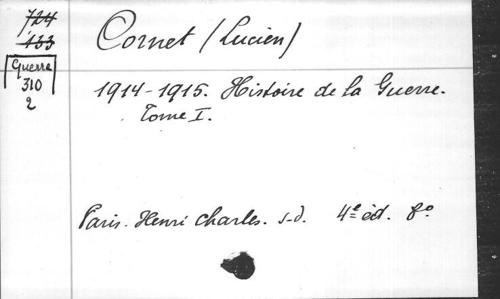 724
133
Guerre
310
2
Cornet (Lucien)
1914-1915. Histoire de la Guerre.
Tome I.
Paris. Henri Charles. s.d. 4e éd. 8o.